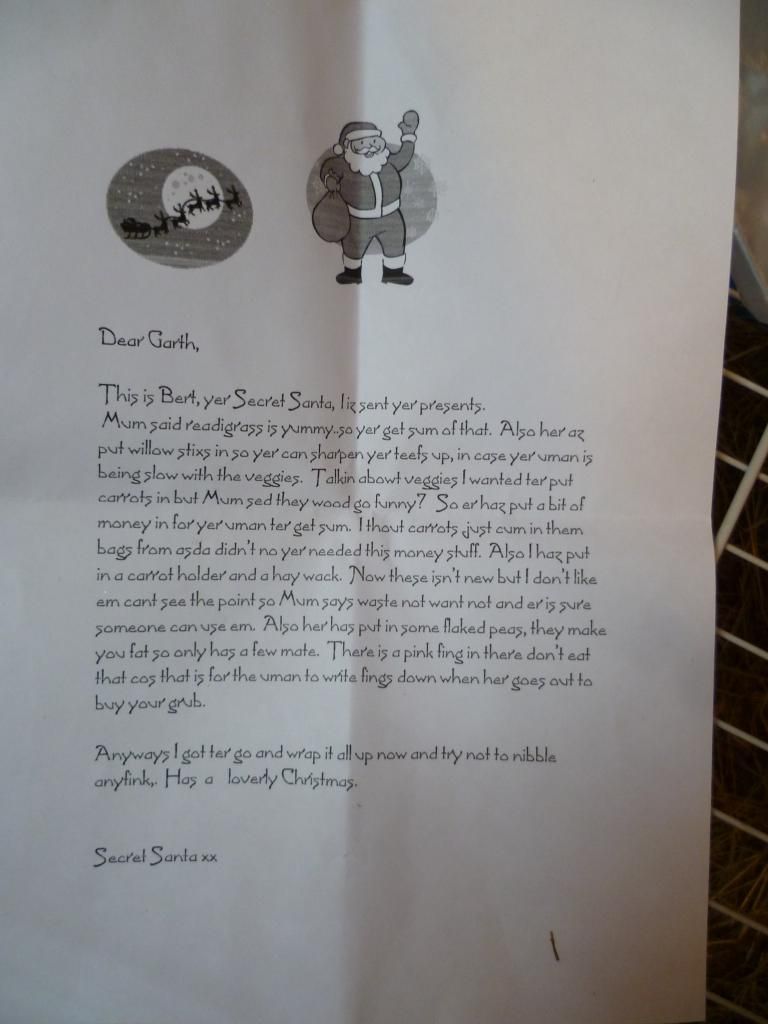 Dear Garth,
This is Bert, yer Secret Santa, I iz sent yer presents.
Mum said readigrass is yummy..so yer get sum of that. Also her az
put willow stixs in so yer can sharpen yer teefs up, in case yer uman is
being slow with the veggies. Talkin abowt veggies I wanted ter put
carrots in but Mum sed they wood go funny? So er haz put a bit of
money in for yer uman ter get sum. I thout carrots just cum in them
bags from asda didn't no yer needed this money stuff. Also I haz put
in a carrot holder and a hay wack. Now these isn't new but I don't like
em cant see the point so Mum says waste not want not and er is sure
someone can use em. Also her has put in some flaked peas, they make
you fat so only has a few mate. There is a pink fing in there don't eat
that cos that is for the uman to write fings down when her goes out to
buy your grub.
Anyways I got ter go and wrap it all up now and try not to nibble
anyfink,. Has a loverly Christmas.
Secret Santa xx